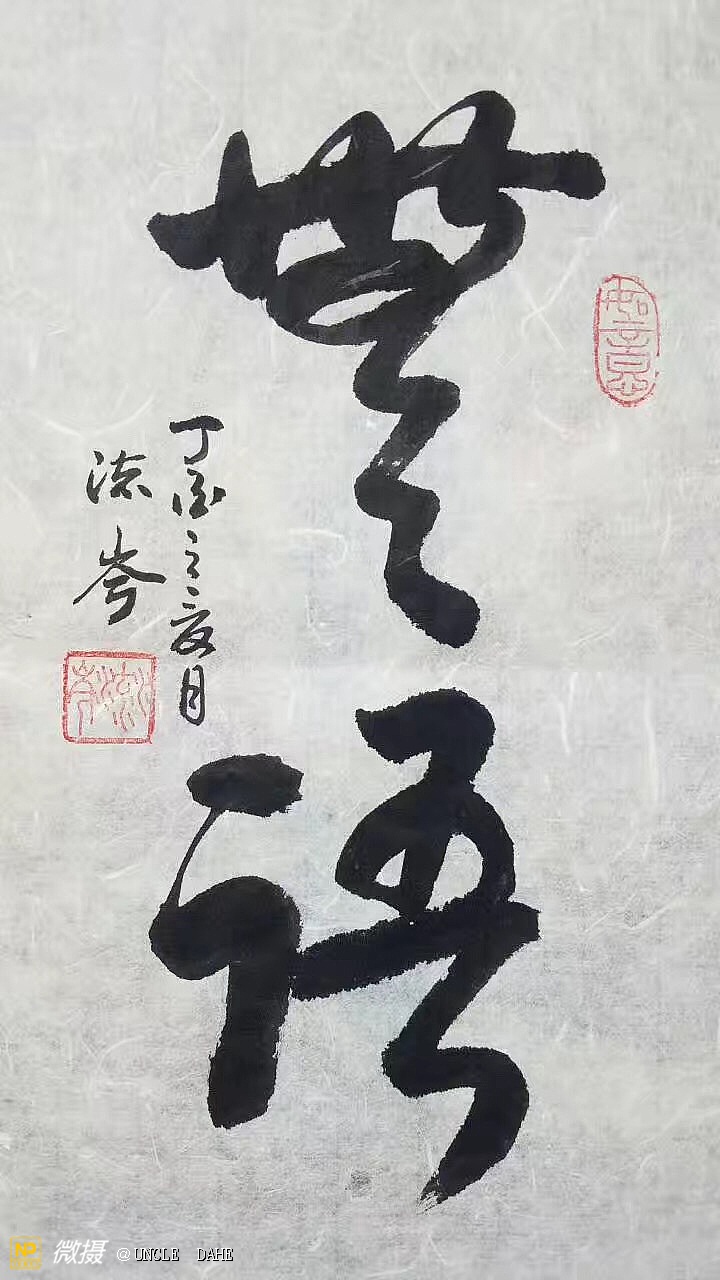 無语
丁酉之夏月
岑
如意
微摄 @UNCLE DAHE